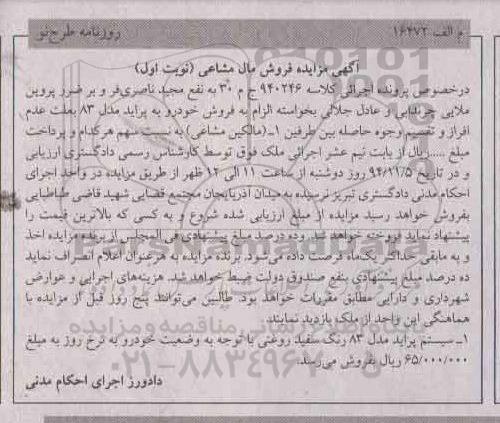 م الف ۱۶۴۷۲ روزنامه طرح نو
آگهی مزایده فروش مال مشاعی (نوبت اول)
درخصوص پرونده اجرائی کلاسه ۹۴۰۲۴۶ ج م ۳۰ به نفع مجید ناصری‌فر و بر ضرر پروین
ملایی چرندابی و عادل جلالی بخواسته الزام به فروش خودرو به پراید مدل ۸۳ بعلت عدم
افراز و تقسیم وجوه حاصله بین طرفین ۱ـ (مالکین مشاعی) به نسبت سهم هرکدام و پرداخت
مبلغ ..... ریال از بابت نیم عشر اجرائی ملک فوق توسط کارشناس رسمی دادگستری ارزیابی
و در تاریخ ۹۴/۱۱/۵ روز دوشنبه از ساعت ۱۱ الی ۱۲ ظهر از طریق مزایده در واحد اجرای
احکام مدنی دادگستری تبریز نرسیده به میدان آذربایجان مجتمع قضایی شهید قاضی طباطبایی
بفروش خواهد رسید مزایده از مبلغ ارزیابی شده شروع و به کسی که بالاترین قیمت را
پیشنهاد نماید فروخته خواهد شد. وده درصد مبلغ پیشنهادی فی‌المجلس از برنده مزایده اخذ
و به مابقی حداکثر یک‌ماه فرصت داده می‌شود. برنده مزایده به هرعنوان اعلام انصراف نماید
ده درصد مبلغ پیشنهادی بنفع صندوق دولت ضبط خواهد شد. هزینه‌های اجرایی و عوارض
شهرداری و دارایی مطابق مقررات خواهد بود. طالبین می‌توانند پنج روز قبل از مزایده با
هماهنگی این واحد از ملک بازدید نمایند.
۱ـ سیستم پراید مدل ۸۳ رنگ سفید روغنی با توجه به وضعیت خودرو به نرخ روز به مبلغ
۶۵/۰۰۰/۰۰۰ ریال بفروش می‌رسد.
دادورز اجرای احکام مدنی
ParsNamadData
۰۲۱-۸۸۳۴۹۶۷۰